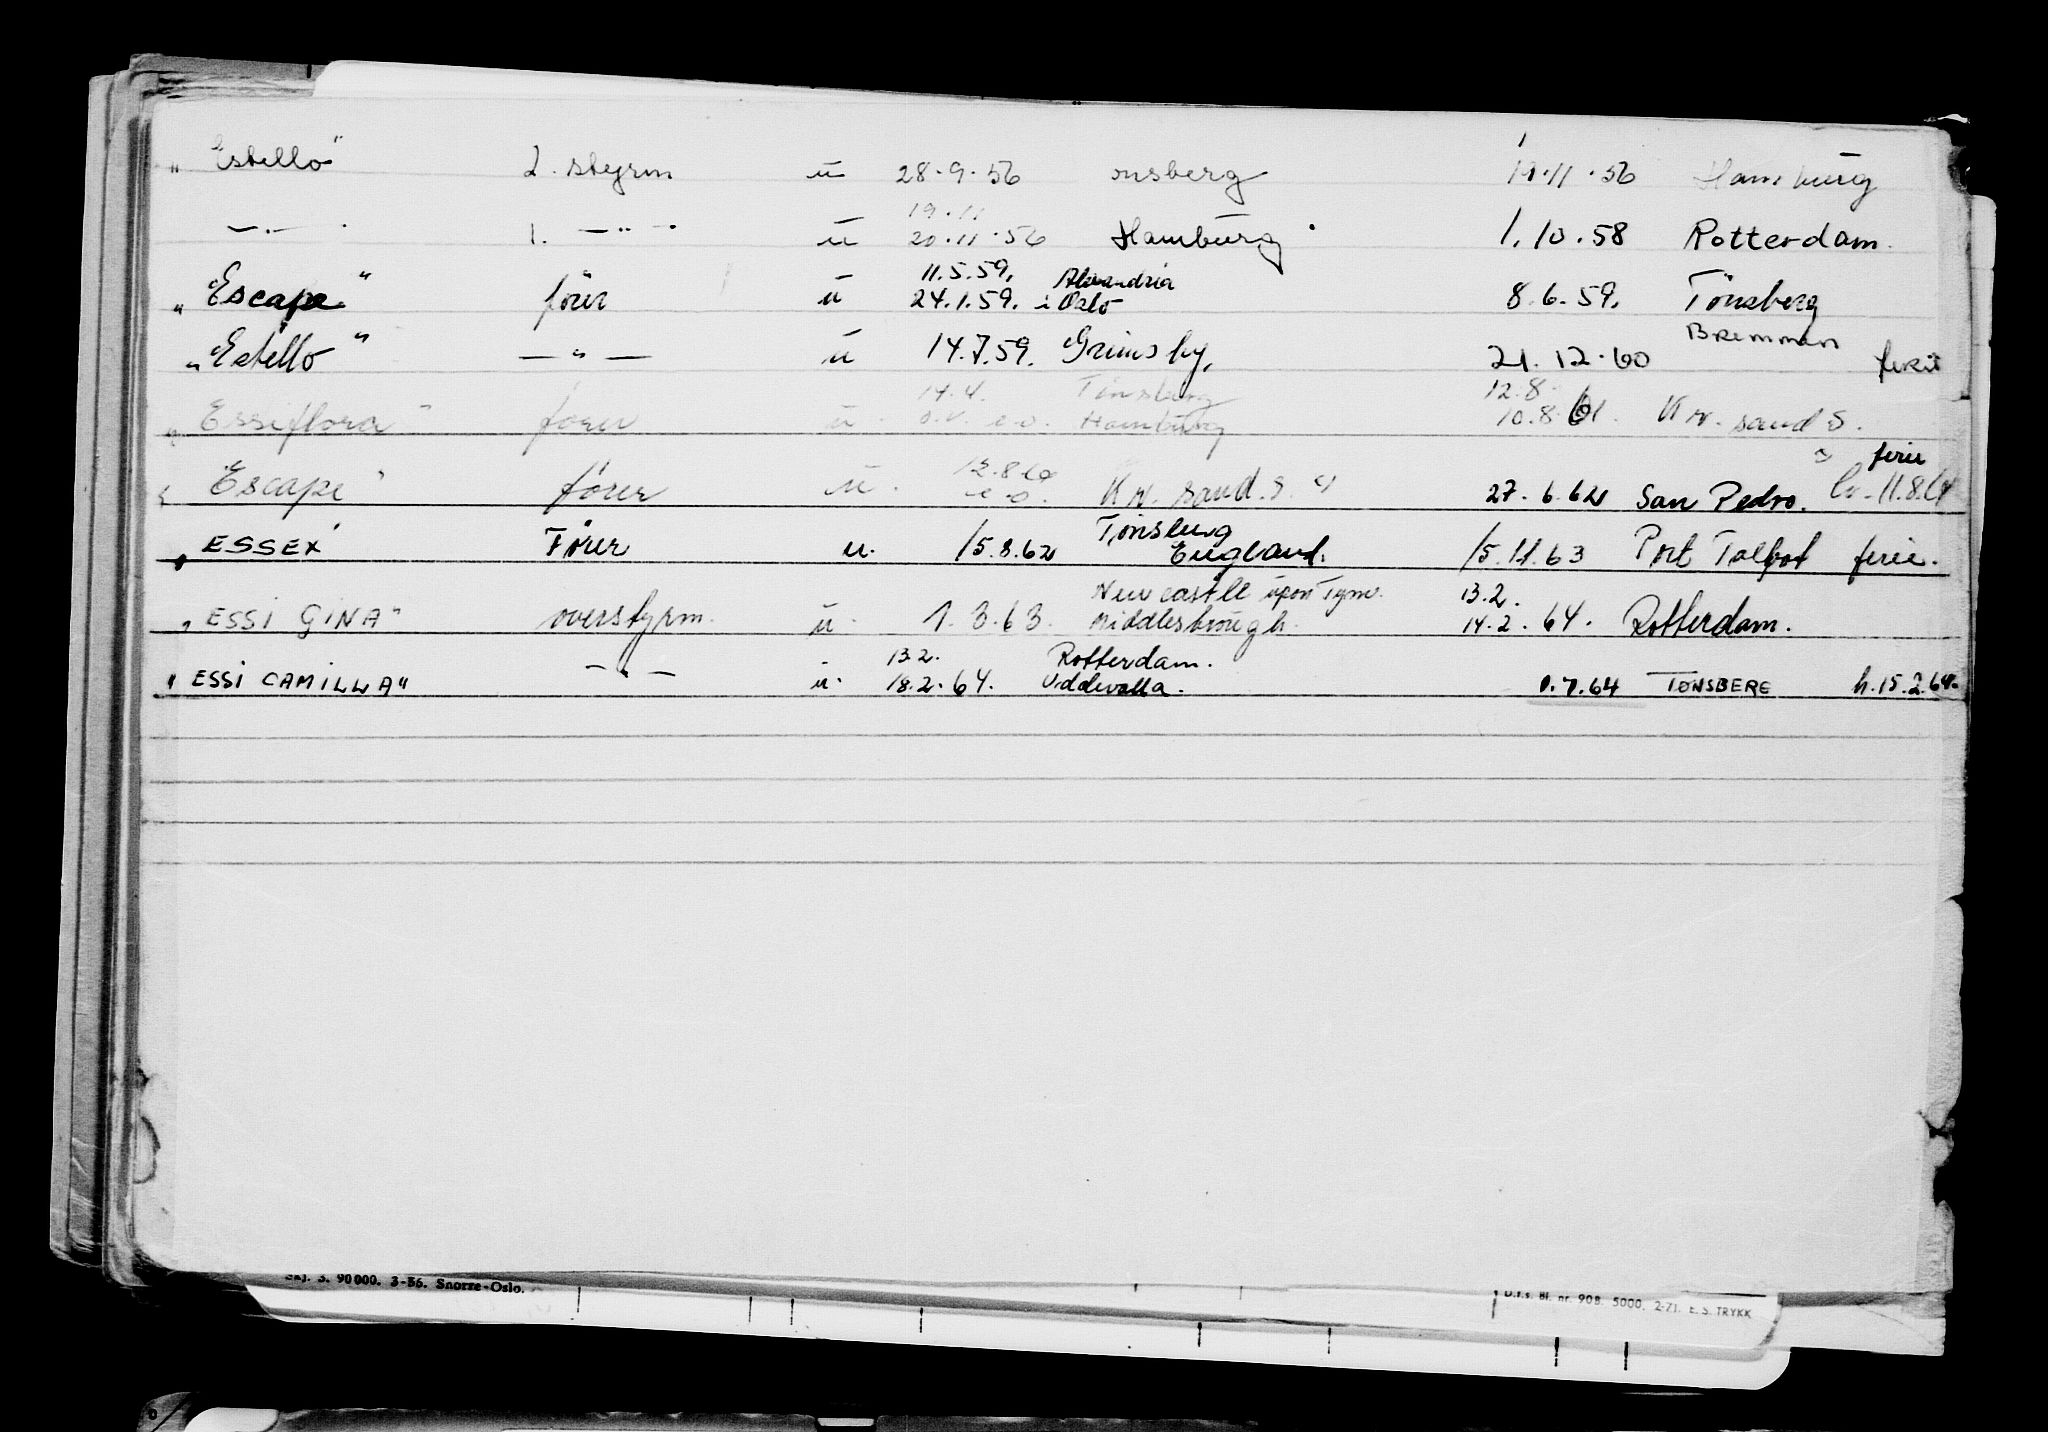 „ Estello" 2. styrm u 28.9.56 onsberg 19.11.56 Hamburg
—„— 1. —„— u 19.11 20.11.56 Hamburg 1.10.58 Rotterdam.
„ Escape" förer u 11.5.59. Alexandria 24.1.59. i Oslo 8.6.59. Tönsberg
„ Estello" —„— u 14.7.59. Grimsby, 21.12.60 Bremmen ferie
„ Essiflora" förer u 14.4. Tönsberg Hamburg 12.8 10.8.61. Kr. sand S.
„ Escape" förer u. 12.8.60 Kr. sand. S. 27.6.62 San Pedro. ferie
„ ESSEX Förer u. 15.8.62 Tönsberg England. 15.11.63 Port Talbot ferie.
„ ESSI GINA" overstyrm. u. 1.3.63. Newcastle upon Tyne. Middlesbrough. 13.2. 14.2.64. Rotterdam.
„ ESSI CAMILLA" —„— u. 13.2. Rotterdam. 18.2.64. Uddevalla. 7.64 TØNSBERG h.15.2.64.
3. 90000. 3-56. Snorre-Oslo.
D.f.s. Bl. nr. 908. 5000. 2-71. E. S. TRYKK